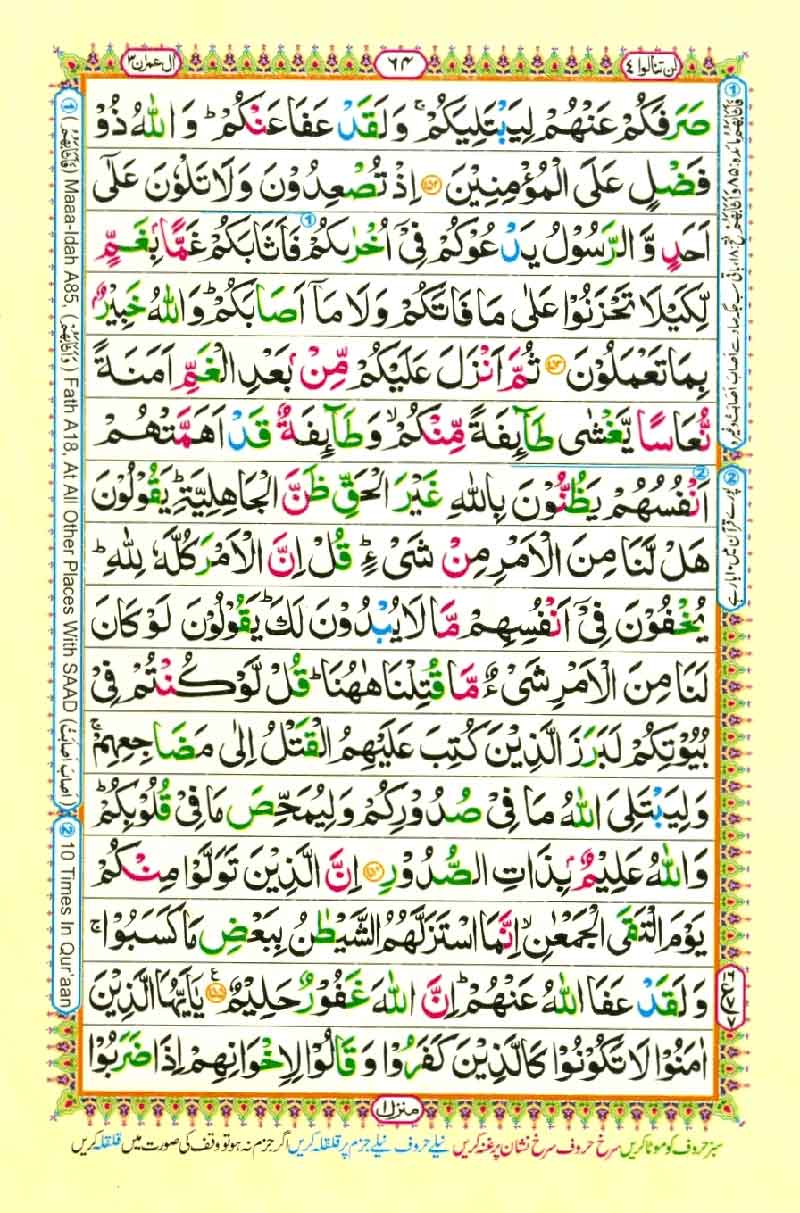 لن تنالوا ٤
٦٤
اٰل عمرٰن ٣
صَرَفَكُمْ عَنْهُمْ لِيَبْتَلِيَكُمْ ۚ وَلَقَدْ عَفَا عَنْكُمْ ؕ وَاللّٰهُ ذُوْ
فَضْلٍ عَلَى الْمُؤْمِنِيْنَ ﴿۱۵۲﴾ اِذْ تُصْعِدُوْنَ وَلَا تَلْوٗنَ عَلٰٓى
اَحَدٍ وَّالرَّسُوْلُ يَدْعُوْكُمْ فِىْٓ اُخْرٰىكُمْ ① فَاَثَابَكُمْ غَمًّۢا بِغَمٍّ
لِّكَيْلَا تَحْزَنُوْا عَلٰى مَا فَاتَكُمْ وَلَا مَآ اَصَابَكُمْ ؕ وَاللّٰهُ خَبِيْرٌۢ
بِمَا تَعْمَلُوْنَ ﴿۱۵۳﴾ ثُمَّ اَنْزَلَ عَلَيْكُمْ مِّنْۢ بَعْدِ الْغَمِّ اَمَنَةً
نُّعَاسًا يَّغْشٰى طَآئِفَةً مِّنْكُمْ ۙ وَطَآئِفَةٌ قَدْ اَهَمَّتْهُمْ
② اَنْفُسُهُمْ يَظُنُّوْنَ بِاللّٰهِ غَيْرَ الْحَقِّ ظَنَّ الْجَاهِلِيَّةِ ؕ يَقُوْلُوْنَ
هَلْ لَّنَا مِنَ الْاَمْرِ مِنْ شَىْءٍ ؕ قُلْ اِنَّ الْاَمْرَ كُلَّهٗ لِلّٰهِ ؕ
يُخْفُوْنَ فِىْٓ اَنْفُسِهِمْ مَّا لَا يُبْدُوْنَ لَكَ ؕ يَقُوْلُوْنَ لَوْ كَانَ
لَنَا مِنَ الْاَمْرِ شَىْءٌ مَّا قُتِلْنَا هٰهُنَا ؕ قُلْ لَّوْ كُنْتُمْ فِىْ
بُيُوْتِكُمْ لَبَرَزَ الَّذِيْنَ كُتِبَ عَلَيْهِمُ الْقَتْلُ اِلٰى مَضَاجِعِهِمْ ۚ
وَلِيَبْتَلِىَ اللّٰهُ مَا فِىْ صُدُوْرِكُمْ وَلِيُمَحِّصَ مَا فِىْ قُلُوْبِكُمْ ؕ
وَاللّٰهُ عَلِيْمٌۢ بِذَاتِ الصُّدُوْرِ ﴿۱۵۴﴾ اِنَّ الَّذِيْنَ تَوَلَّوْا مِنْكُمْ
يَوْمَ الْتَقَى الْجَمْعٰنِ ۙ اِنَّمَا اسْتَزَلَّهُمُ الشَّيْطٰنُ بِبَعْضِ مَا كَسَبُوْا ۚ
وَلَقَدْ عَفَا اللّٰهُ عَنْهُمْ ؕ اِنَّ اللّٰهَ غَفُوْرٌ حَلِيْمٌ ﴿۱۵۵﴾ يٰٓاَيُّهَا الَّذِيْنَ
اٰمَنُوْا لَا تَكُوْنُوْا كَالَّذِيْنَ كَفَرُوْا وَقَالُوْا لِاِخْوَانِهِمْ اِذَا ضَرَبُوْا
① (فَاَثَابَهُمْ) Maaa-Idah A85, (وَاَثَابَهُمْ) Fath A18, At All Other Places With SAAD (اَصَابَ اَصَابَتْ)
② 10 Times In Qur'aan
② پورے قرآن میں ۱۰ بار ہے
ع
منزل ۱
سبز حروف کو موٹا کریں سرخ حروف سرخ نشان پر غنہ کریں نیلے حروف نیلے جزم پر قلقلہ کریں اگر جزم نہ ہو تو وقف کی صورت میں قلقلہ کریں